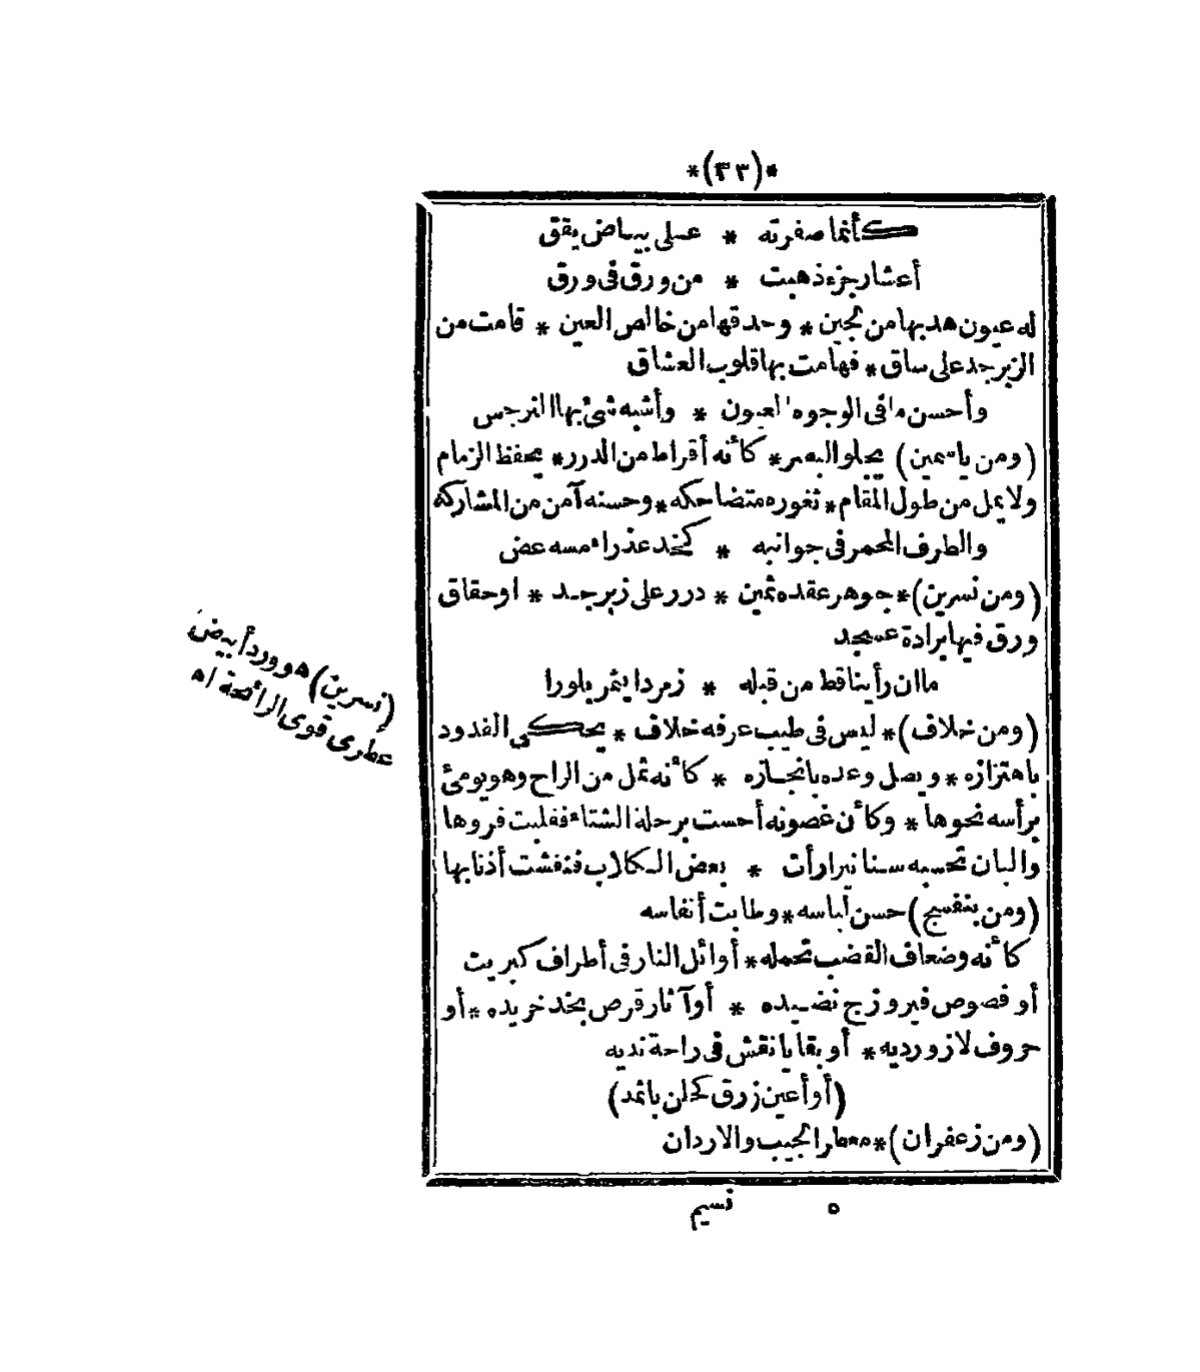 *(٣٣)*
كأنما صفرته * على بياض يقق
أعشار جزء ذهبت * من ورق فى ورق
له عيون هدبها من لجين * وحدقها من خالص العين * قامت من
الزبرجد على ساق * فهامت بها قلوب العشاق
وأحسن ما فى الوجوه العيون * وأشبه شئ بها النرجس
(ومن ياسمين) يجلو البصر * كأنه أقراط من الدرر * يحفظ الزمام
ولا يمل من طول المقام * ثغوره متضاحكه * وحسنه آمن من المشاركه
والطرف المحمر فى جوانبه * كخد عذراء مسه عض
(ومن نسرين) * جوهر عقده ثمين * درر على زبرجد * او حقاق
ورق فيها برادة عسجد
ما ان رأينا قط من قبله * زمردا يثمر بلورا
(ومن خلاف) * ليس فى طيب عرفه خلاف * يحكى القدود
باهتزازه * ويصل وعده بانجازه * كأنه ثمل من الراح وهو يومئ
برأسه نحوها * وكأن غصونه أحست برحلة الشتاء فقلبت فروها
والبان تحسبه سنانيرا رأت * بعض الكلاب فنفشت أذنابها
(ومن بنفسج) حسن لباسه * وطابت أنفاسه
كأنه وضعاف القضب تحمله * أوائل النار فى أطراف كبريت
أو فصوص فيروزج نضيده * أو آثار قرص بخد خريده * أو
حروف لازورديه * أو بقايا نقش فى راحة نديه
(أو أعين زرق كحلن باثمد)
(ومن زعفران) * معطر الجيب والاردان
٥ نسيم
(نسرين) هو ورد أبيض
عطرى قوى الرائحة اه